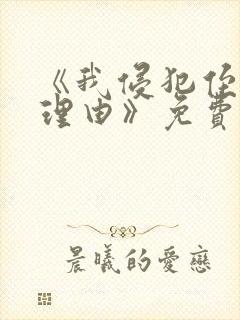 《我侵犯住
理由》免費
晨曦的愛戀